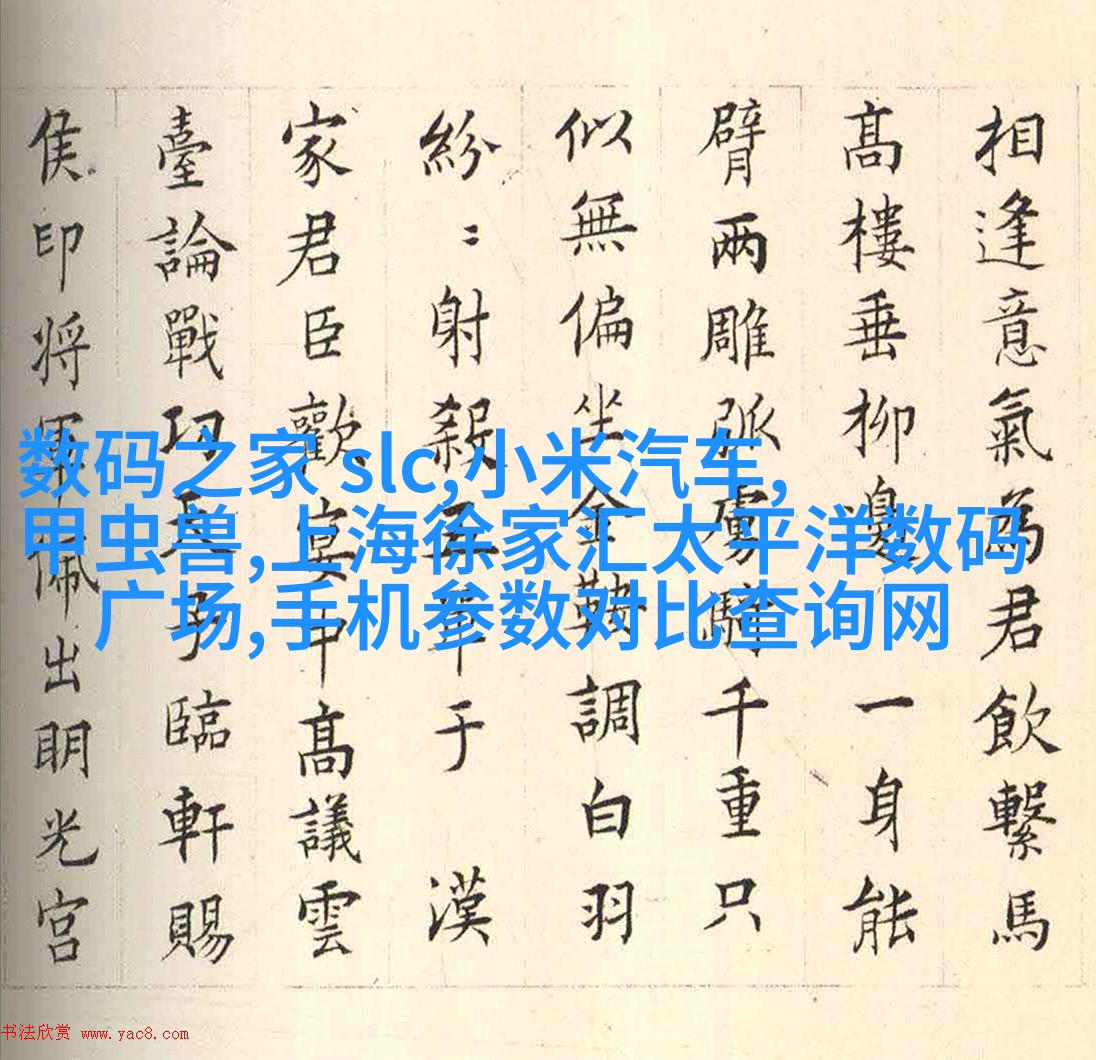 相逢意氣為君飲繫馬
高樓垂柳邊一身能
臂兩雕弧虜騎千重只
似無偏坐金鞍調白羽
紛〻射殺五單于漢
家君臣歡宴高議雲
臺論戰功天子臨軒賜
侯印将軍佩出明光宮
数码之家 slc,小米汽车,
甲虫兽,上海徐家汇太平洋数码
广场,手机参数对比查询网
书法欣赏 www.yac8.com